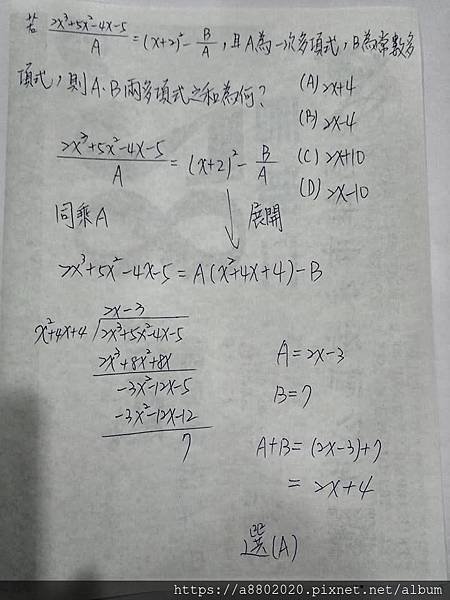 若 (2x³+5x²-4x-5)/A = (x+2)² - B/A，且A為一次多項式，B為常數多
項式，則A、B兩多項式之和為何？
(A) 2x+4
(B) 2x-4
(C) 2x+10
(D) 2x-10
(2x³+5x²-4x-5)/A = (x+2)² - B/A
同乘A
展開
2x³+5x²-4x-5 = A(x²+4x+4)-B
2x-3
x²+4x+4 ) 2x³+5x²-4x-5
2x³+8x²+8x
-3x²-12x-5
-3x²-12x-12
7
A=2x-3
B=7
A+B=(2x-3)+7
=2x+4
選(A)
https://a8802020.pixnet.net/album